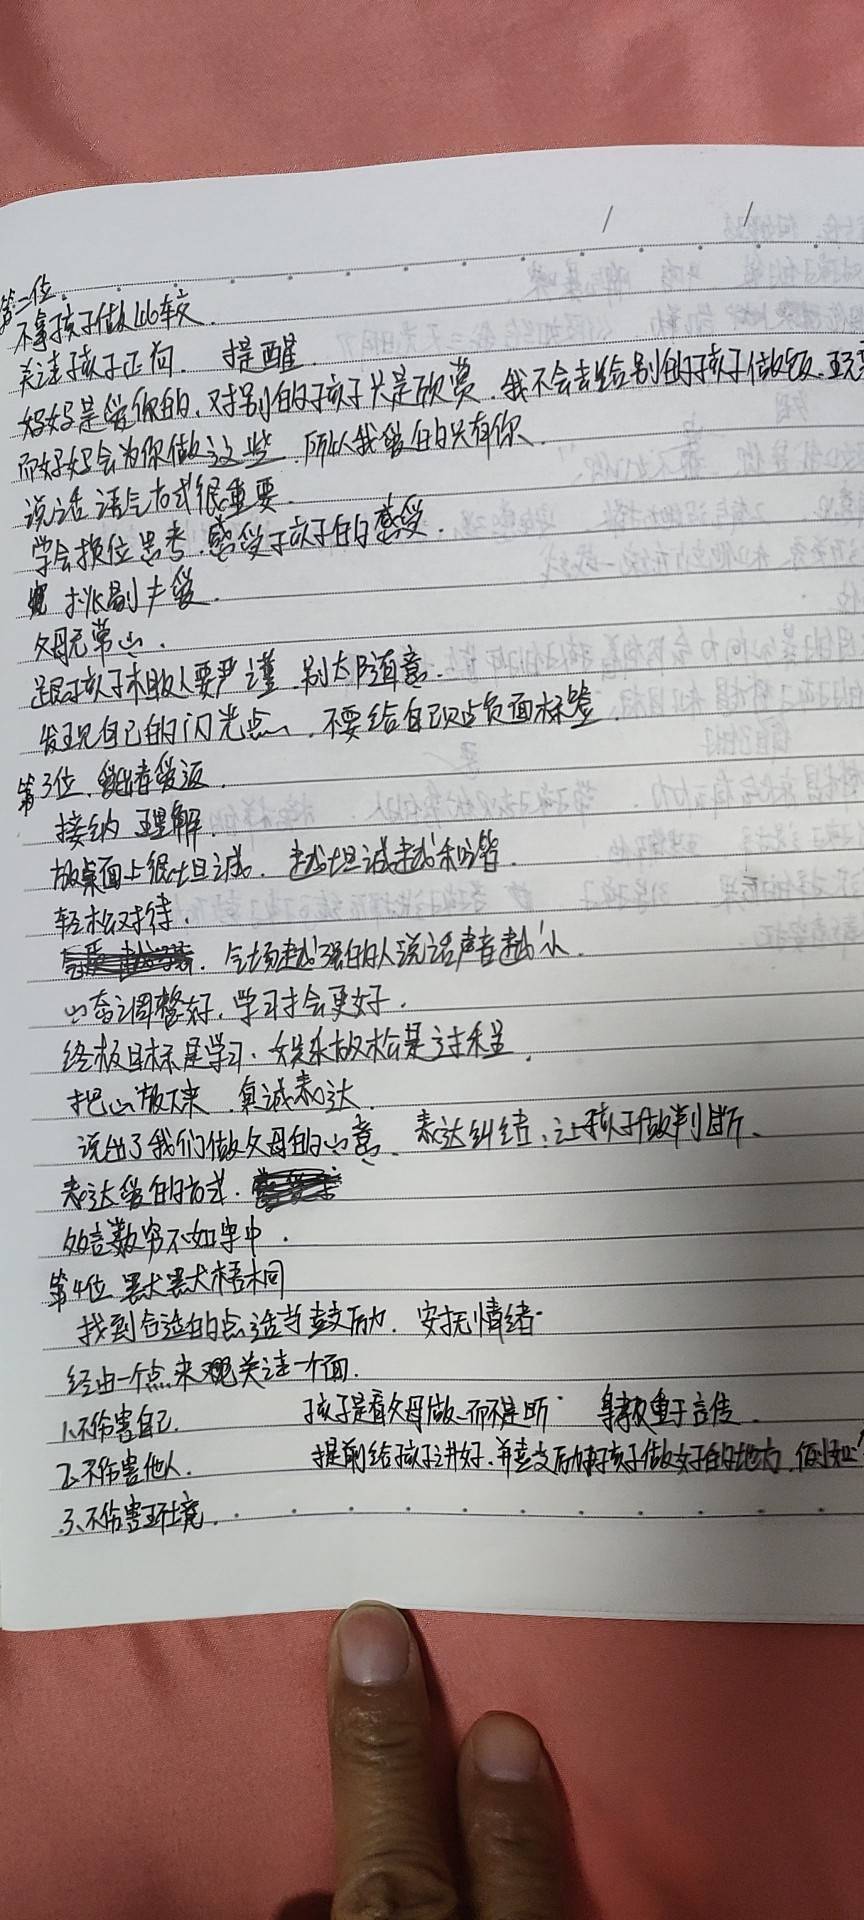 第二位.
不拿孩子做比较.
关注孩子正向. 提醒.
妈妈是爱你的、对别的孩子只是欣赏. 我不会去给别的孩子做饭.
而妈妈会为你做这些. 所以我爱的只有你.
说话语气方式很重要.
学会换位思考. 感受孩子的感受.
挑剔非爱.
父母无常心.
跟孩子相处要严谨. 别太随意.
发现自己的闪光点. 不要给自己贴负面标签.
第3位. 爱者爱返.
接纳 理解.
放桌面上很坦诚. 越坦诚越和谐.
轻松对待.
气场越强的人说话声音越小.
心态调整好. 学习才会更好.
终极目标是学习. 娱乐放松是过程.
把心放下来. 真诚表达.
说出了我们做父母的心意. 表达纠结:让孩子做判断.
表达爱的方式.
多言数穷不如守中.
第4位 默默梧桐
找到合适的点适当鼓励. 安抚情绪.
经由一个点来观关注一个面.
1.不伤害自己. 孩子是看父母做而不是听. 身教重于言传.
2.不伤害他人. 提前给孩子讲好. 并鼓励孩子做好的地方. 例如
3、不伤害环境.